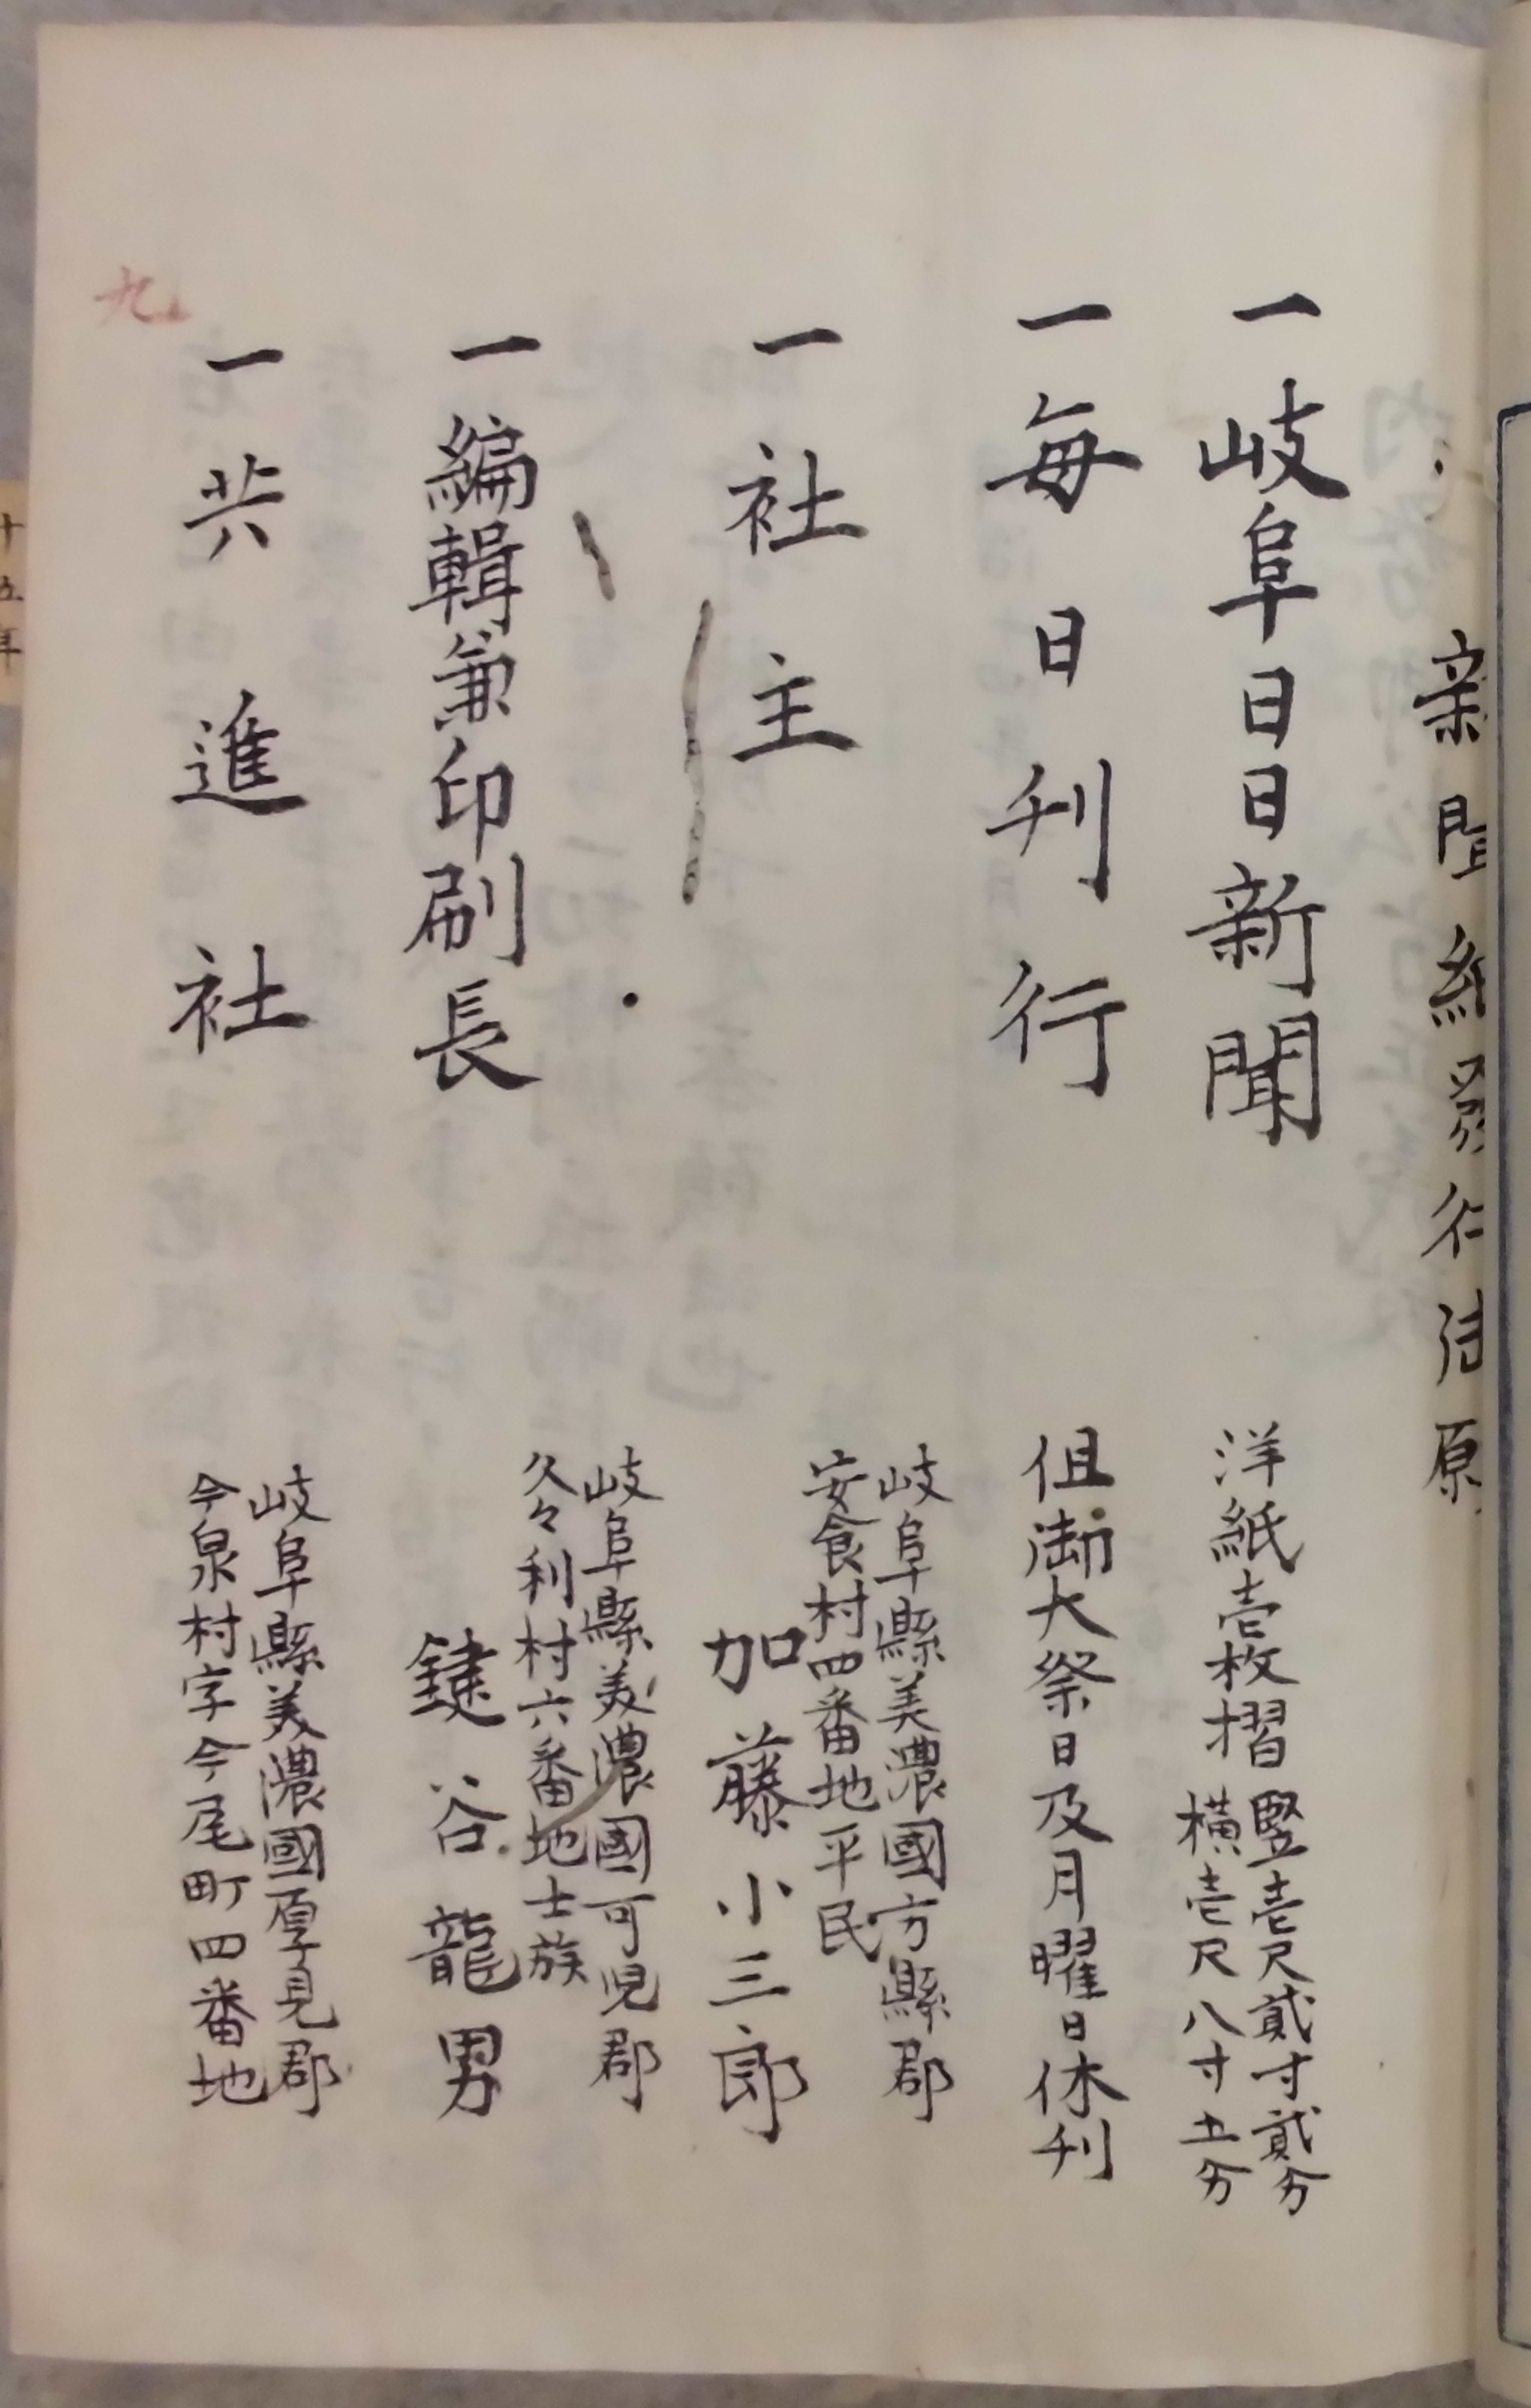 新聞紙發行御願
一岐阜日日新聞
洋紙壱枚摺
竪壱尺貳寸貳分
横壱尺八寸五分
一毎日刊行
但御大祭日及月曜日休刊
一社主
岐阜縣美濃國方縣郡
安食村四番地平民
加藤小三郎
一編輯兼印刷長
岐阜縣美濃國可児郡
久々利村六番地士族
鍵谷龍男
一共進社
岐阜縣美濃國厚見郡
今泉村字今尾町四番地
九
十五年